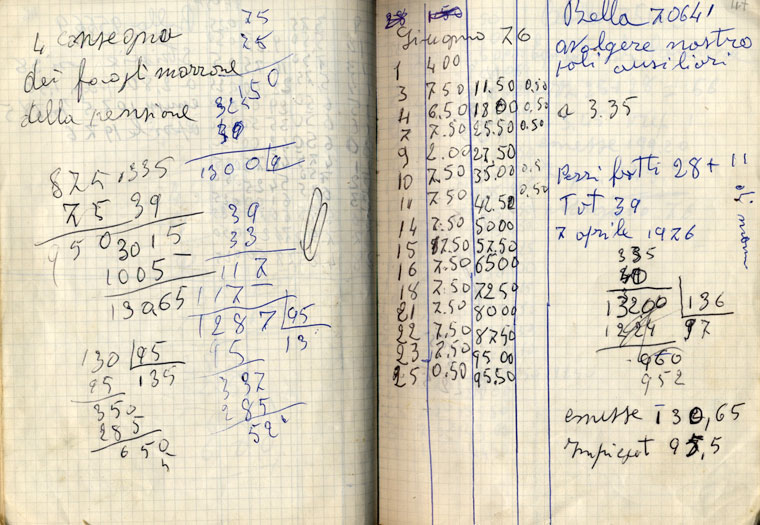 75
4 consegna
dei fogli marrone
150
della pensione 325
39
1300 9
875 335
75 39
950 3015
1005
130,65
39
33
117
117
1287 95
95 13
337
285
52
130 95
95 135
350
285
650
Giugno 76
1 400
3 7.50 11.50 0.50
4 6.50 1800 0.50
7 7.50 25.50 0.50
9 2.00 27,50
10 7.50 35.00 0.5
11 7.50 42.50 0.50
14 7.50 5000
15 7.50 57.50
16 7.50 6500
18 7.50 7250
21 7.50 8000
22 7.50 8750
23 7.50 9500
25 0.50 95.50
47
Bella 70641
avolgere nostro
poli ausiliari
a 3.35
Pezzi fatti 28 + 11
Tot 39
7 aprile 1976
335
13200 136
1224 97
960
952
emesse 130,65
Impiegat 95,5